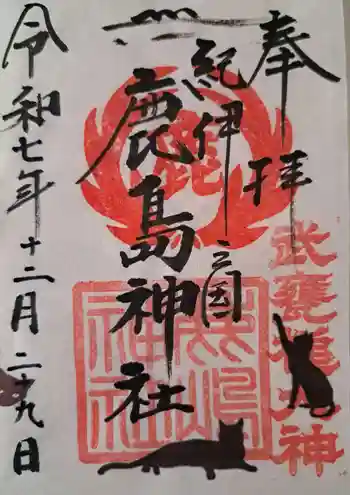 奉拝
紀伊之国
鹿島神社
令和七年十二月二十九日
武甕槌大神
鹿嶋神社